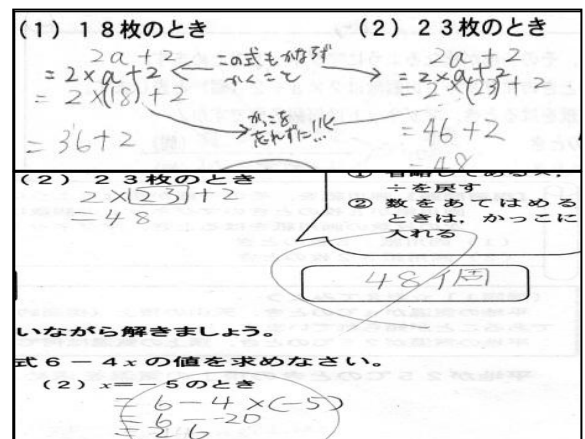 (1) 18枚のとき
2a+2
=2×a+2
=2×(18)+2
=36+2
この式もかならず
かくこと
かっこを
忘れずに!!
(2) 23枚のとき
2a+2
=2×a+2
2×(23)+2
=46+2
48
(2) 23枚のとき
2×(23)+2
=48
① 省略してある×,
÷を戻す
② 数をあてはめる
ときは,かっこに
入れる
48個
いながら解きましょう。
式6-4xの値を求めなさい。
(2) x=-5のとき
=6-4×(-5)
=6--20
=26